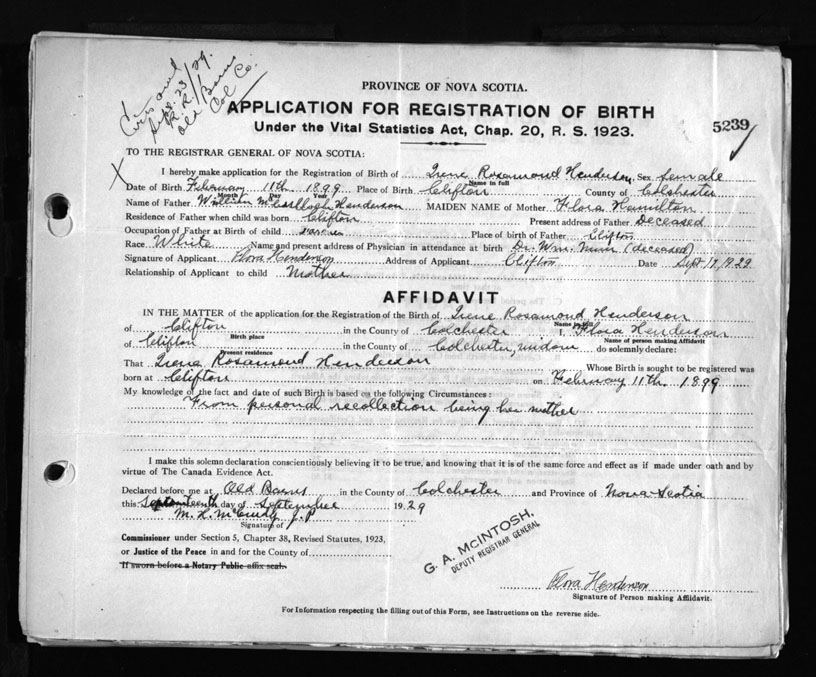 Sept. 23/29.
R.R.1
Old Barns
Col. Co.
PROVINCE OF NOVA SCOTIA.
APPLICATION FOR REGISTRATION OF BIRTH
Under the Vital Statistics Act, Chap. 20, R. S. 1923.
5239
TO THE REGISTRAR GENERAL OF NOVA SCOTIA:
X
I hereby make application for the Registration of Birth of Irene Rosamond Henderson Sex Female
Name in full
Date of Birth February 11th 1899 Place of Birth Clifton County of Colchester
Month Day Year
Name of Father William Henderson MAIDEN NAME of Mother Flora Hamilton
Residence of Father when child was born Clifton Present address of Father Deceased
Occupation of Father at Birth of child Place of birth of Father Clifton
Race White Name and present address of Physician in attendance at birth Dr. Wm. Muir (deceased)
Signature of Applicant Flora Henderson Address of Applicant Clifton Date Sept 17, 1929
Relationship of Applicant to child Mother
AFFIDAVIT
IN THE MATTER of the application for the Registration of the Birth of Irene Rosamond Henderson
Name in full
of Clifton in the County of Colchester I, Flora Henderson
Birth place Name of person making Affidavit
of Clifton in the County of Colchester, widow do solemnly declare:
Present residence
That Irene Rosamond Henderson Whose Birth is sought to be registered was
born at Clifton on February 11th 1899
My knowledge of the fact and date of such Birth is based on the following Circumstances:
From personal recollection being her mother
I make this solemn declaration conscientiously believing it to be true, and knowing that it is of the same force and effect as if made under oath and by
virtue of The Canada Evidence Act.
Declared before me at Old Barns in the County of Colchester and Province of Nova Scotia
this Seventeenth day of September 1929
M. H. McCurdy J.P
Signature of
Commissioner under Section 5, Chapter 38, Revised Statutes, 1923,
or Justice of the Peace in and for the County of
If sworn before a Notary Public affix seal.
G. A. McINTOSH,
DEPUTY REGISTRAR GENERAL
Flora Henderson
Signature of Person making Affidavit.
For Information respecting the filling out of this Form, see Instructions on the reverse side.